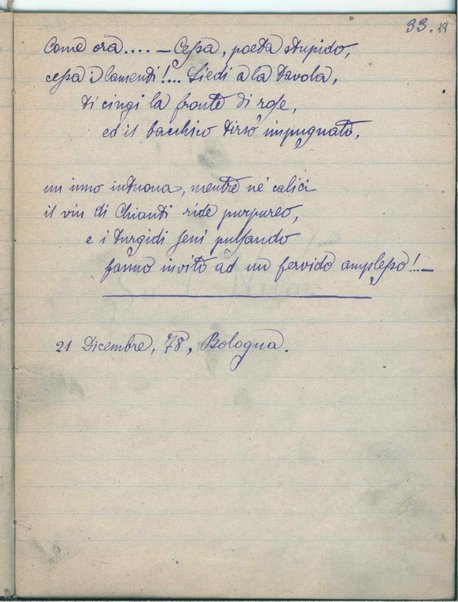 33. 19
Come ora.... – Cessa, poeta stupido,
cessa i lamenti!... Siedi a la tavola,
ti cingi la fronte di rose,
ed il bacchico tirso impugnato,
un inno intuona, mentre ne' calici
il vin di Chianti ride purpureo,
e i turgidi seni pulsando
fanno invito ad un fervido amplesso!.. –
21 Dicembre, 78, Bologna.